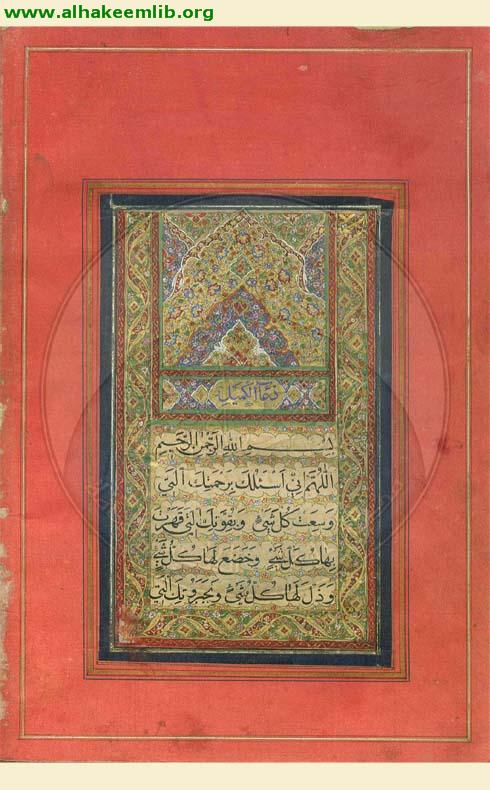 www.alhakeemlib.org
دعاء الكميل
بسم الله الرحمن الرحيم
اللهم اني اسئلك برحمتك التي
وسعت كل شيء وبقوتك التي قهرت
بها كل شيء وخضع لها كل شيء
وذل لها كل شيء وبجبروتك التي